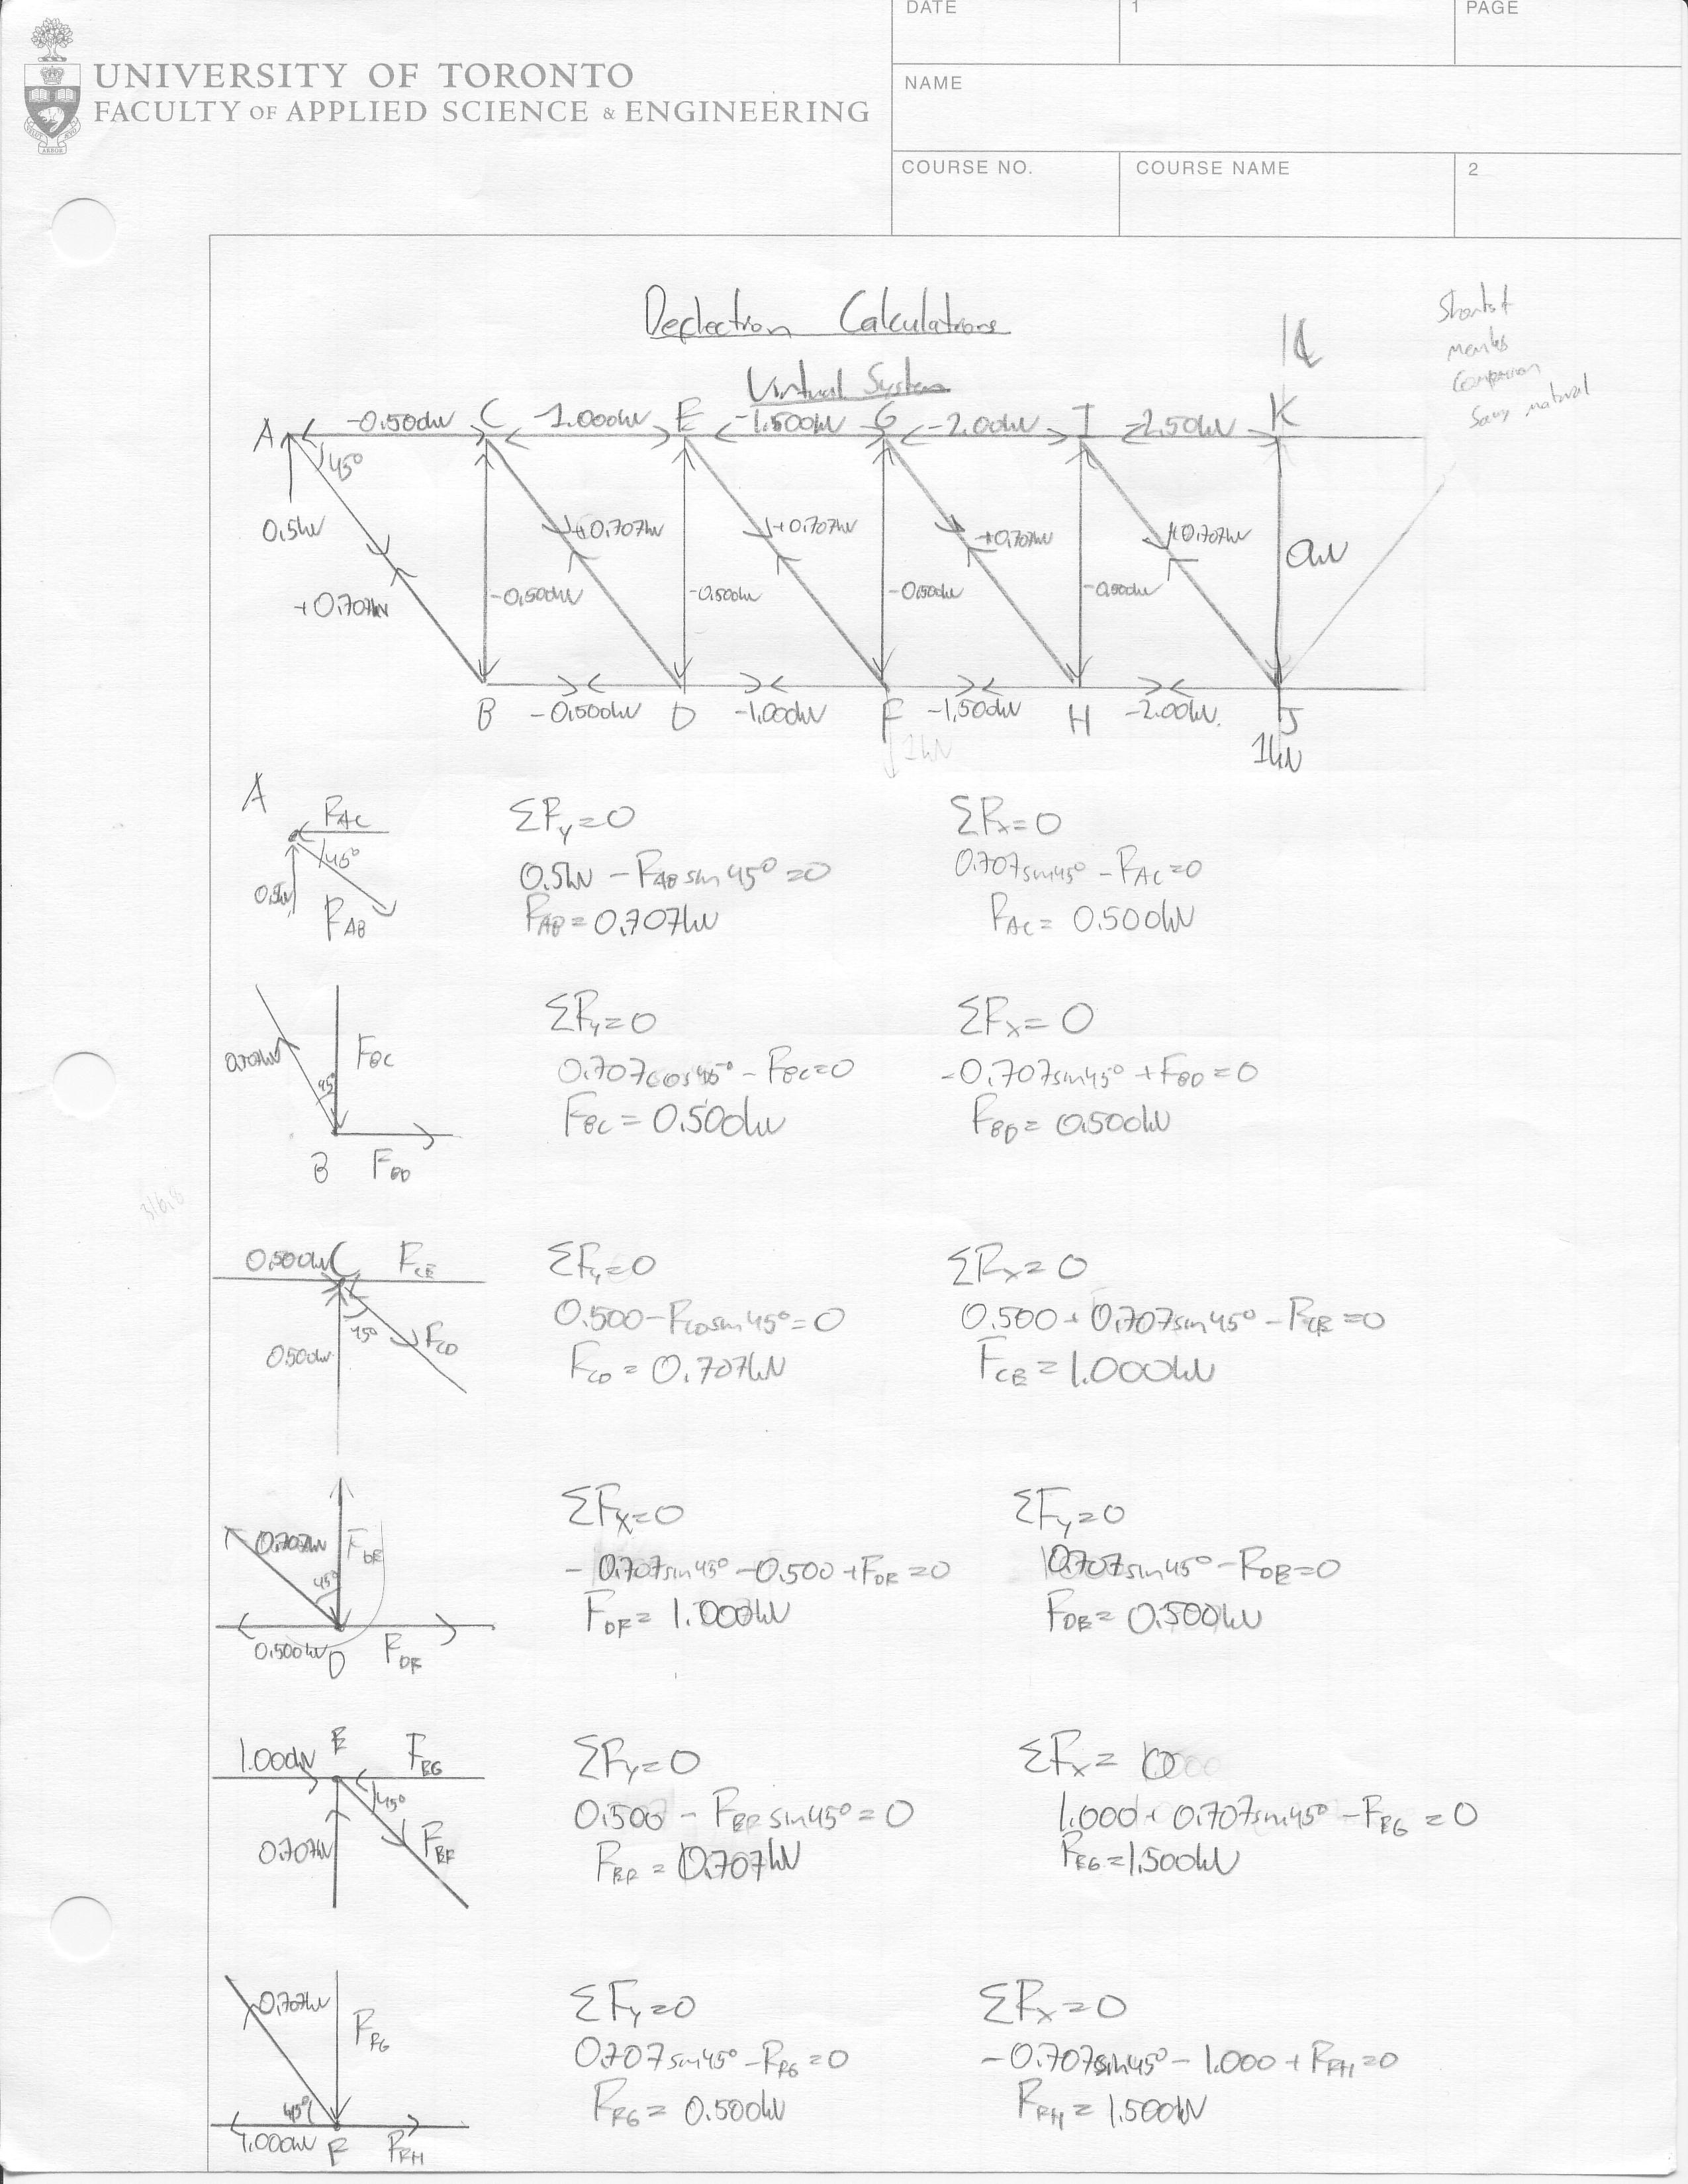 DATE
1
PAGE
UNIVERSITY OF TORONTO
FACULTY OF APPLIED SCIENCE & ENGINEERING
NAME
COURSE NO.
COURSE NAME
2
Deflection Calculations
Virtual System
Shortest
member
Same material
A -0.500kN C -1.000kN E -1.500kN G -2.00kN I -2.50kN K
45°
0.5kN
+0.707kN +0.707kN +0.707kN +0.707kN 0kN
+0.707kN -0.500kN -0.500kN -0.500kN -0.500kN
B -0.500kN D -1.00kN F -1.50kN H -2.00kN. J
1kN 1kN
A
F_AC
45°
0.5kN
F_AB
ΣF_y=0
0.5kN - F_AB sin45° =0
F_AB = 0.707kN
ΣF_x=0
0.707sin45° - F_AC =0
F_AC = 0.500kN
0.707kN
F_BC
45°
B F_BD
ΣF_y=0
0.707cos45° - F_BC=0
F_BC = 0.500kN
ΣF_x= 0
-0.707sin45° + F_BD = 0
F_BD = 0.500kN
0.500kN C F_CE
45° F_CD
0.500kN
ΣF_y=0
0.500 - F_CD sin45° = 0
F_CD = 0.707kN
ΣF_x= 0
0.500 + 0.707sin45° - F_CE = 0
F_CE = 1.000kN
0.707kN F_DE
45°
0.500kN D F_DF
ΣF_x=0
- 0.707sin45° - 0.500 + F_DF = 0
F_DF = 1.000kN
ΣF_y=0
0.707sin45° - F_DE=0
F_DE = 0.500kN
1.000kN E F_EG
45°
0.707kN F_EF
ΣF_y=0
0.500 - F_EF sin45° = 0
F_EF = 0.707kN
ΣF_x= 0
1.000 + 0.707sin45° - F_EG = 0
F_EG = 1.500kN
0.707kN
F_FG
45°
1.000kN F F_FH
ΣF_y=0
0.707sin45° - F_FG = 0
F_FG = 0.500kN
ΣF_x=0
-0.707sin45° - 1.000 + F_FH = 0
F_FH = 1.500kN